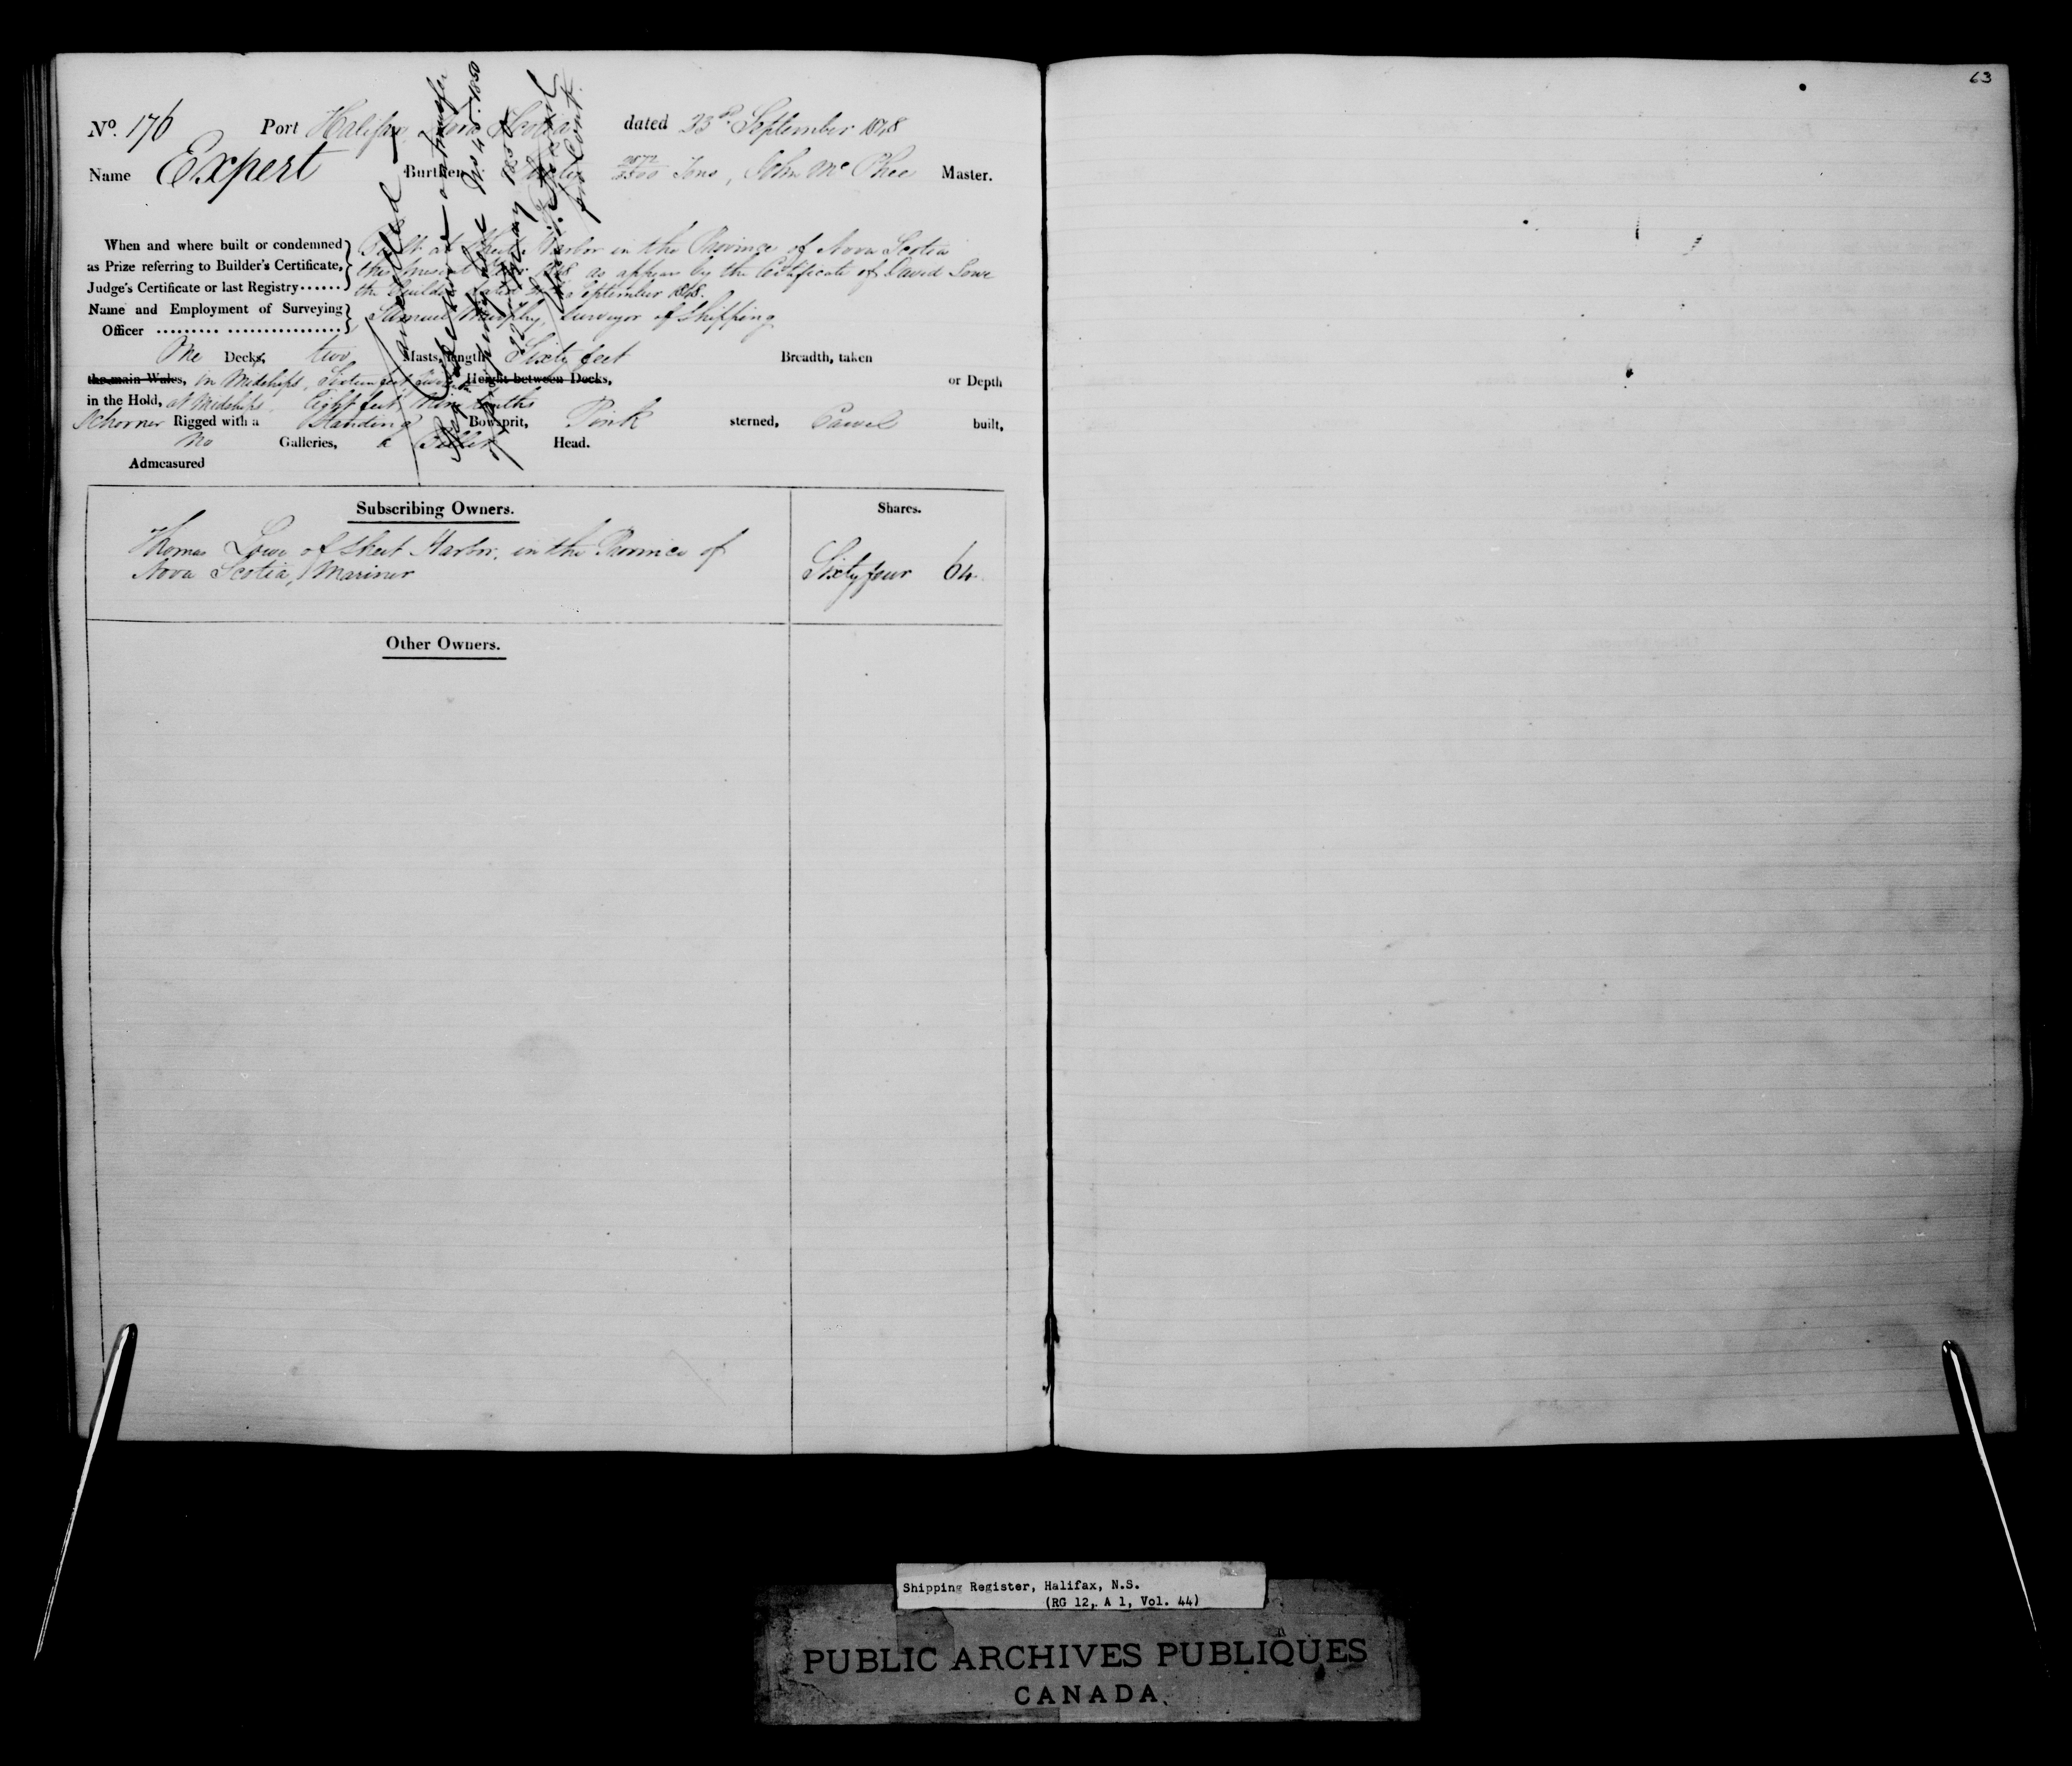 63
No. 176 Port Halifax, Nova Scotia dated 23d September 1848
Name Expert Burthen Tons, John McPhee Master.
When and where built or condemned
as Prize referring to Builder's Certificate,
Judge's Certificate or last Registry......
Built at Sheet Harbor in the Province of Nova Scotia
this present year 1848 as appears by the Certificate of David Lowe
the Builder dated September 1848.
Name and Employment of Surveying
Officer ......... .................
Samuel Murphy, Surveyor of Shipping
One Decks, two Masts, length Sixty feet Breadth, taken
the main Wales, in Midships, Sixteen feet Height between Decks, or Depth
in the Hold, at Midships Eight feet Nine tenths
Schooner Rigged with a Standing Bowsprit, Pink sterned, Carvel built,
no Galleries, a Billet Head.
Admeasured
Cancelled
a transfer
No 45. 1850
1850
Cont.
Subscribing Owners. Shares.
Thomas Lowe of Sheet Harbor, in the Province of
Nova Scotia, Mariner
Sixty four 64
Other Owners.
Shipping Register, Halifax, N.S.
(RG 12, A 1, Vol. 44)
PUBLIC ARCHIVES PUBLIQUES
CANADA